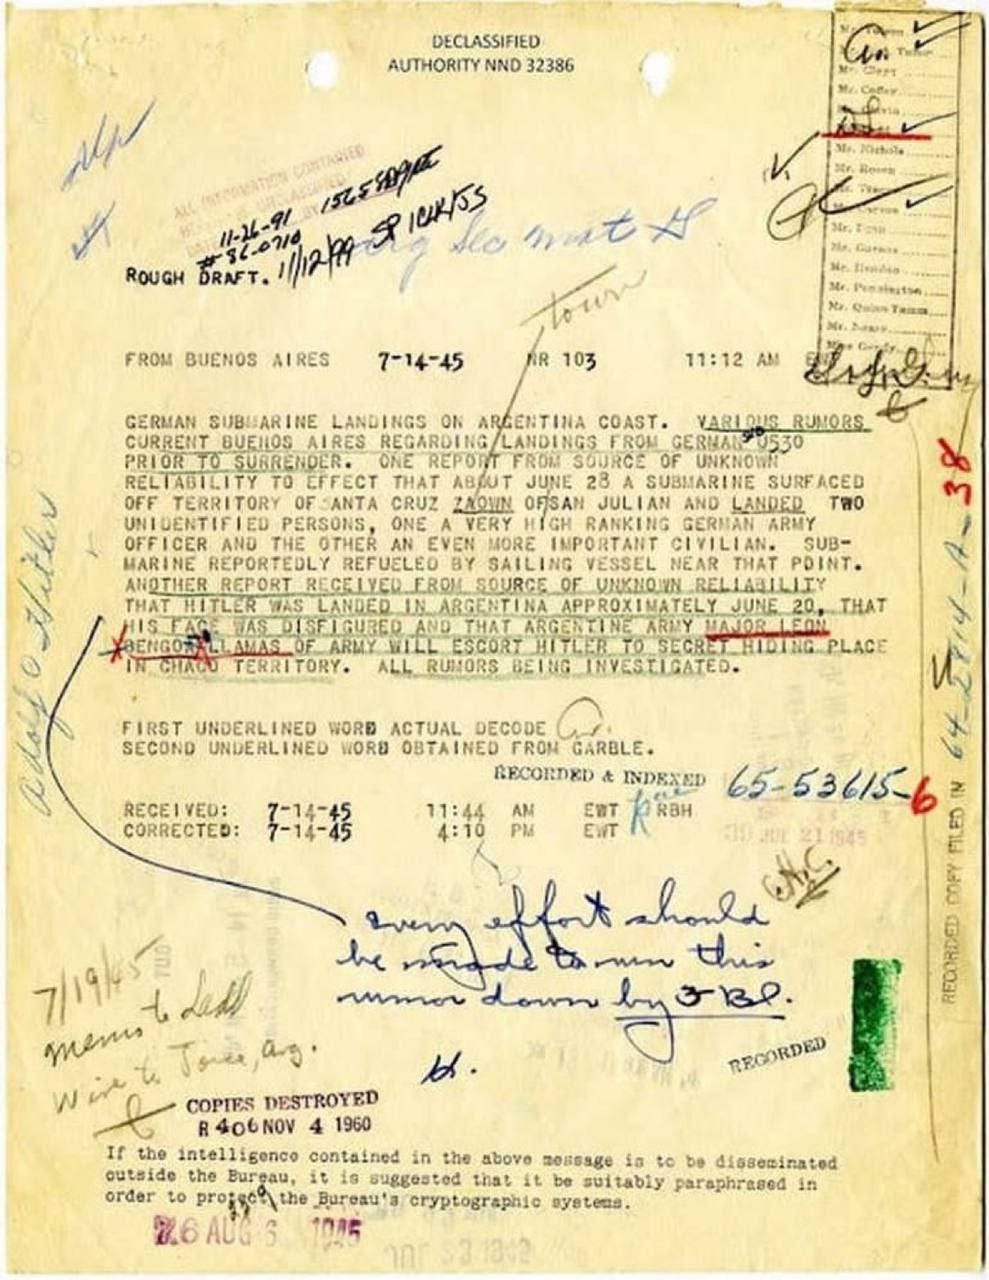 DECLASSIFIED
AUTHORITY NND 32386
Mr. Clegg
Mr. Coffey
Mr. Nichols
Mr. Rosen
Mr. Carson
Mr. Egan
Mr. Hendon
Mr. Pennington
Mr. Quinn Tamm
Mr. Nease
Miss Gandy
ALL INFORMATION CONTAINED
11-26-91
#86-0710
11/12/99
ROUGH DRAFT.
town
FROM BUENOS AIRES 7-14-45 NR 103 11:12 AM
GERMAN SUBMARINE LANDINGS ON ARGENTINA COAST. VARIOUS RUMORS
CURRENT BUENOS AIRES REGARDING LANDINGS FROM GERMAN U530
PRIOR TO SURRENDER. ONE REPORT FROM SOURCE OF UNKNOWN
RELIABILITY TO EFFECT THAT ABOUT JUNE 28 A SUBMARINE SURFACED
OFF TERRITORY OF SANTA CRUZ ZAOWN OF SAN JULIAN AND LANDED TWO
UNIDENTIFIED PERSONS, ONE A VERY HIGH RANKING GERMAN ARMY
OFFICER AND THE OTHER AN EVEN MORE IMPORTANT CIVILIAN. SUB-
MARINE REPORTEDLY REFUELED BY SAILING VESSEL NEAR THAT POINT.
ANOTHER REPORT RECEIVED FROM SOURCE OF UNKNOWN RELIABILITY
THAT HITLER WAS LANDED IN ARGENTINA APPROXIMATELY JUNE 20, THAT
HIS FACE WAS DISFIGURED AND THAT ARGENTINE ARMY MAJOR LEON
BENGOA LLAMAS OF ARMY WILL ESCORT HITLER TO SECRET HIDING PLACE
IN CHACO TERRITORY. ALL RUMORS BEING INVESTIGATED.
Adolf Hitler
FIRST UNDERLINED WORD ACTUAL DECODE
SECOND UNDERLINED WORD OBTAINED FROM GARBLE.
RECORDED & INDEXED
65-53615-6
RECEIVED: 7-14-45 11:44 AM EWT RBH
CORRECTED: 7-14-45 4:10 PM EWT
JUL 21 1945
RECORDED COPY FILED IN 64-2814-A-38
every effort should
be made to run this
rumor down by FBI.
H.
7/19/45
memo to Ladd
Wire to
Arg.
RECORDED
COPIES DESTROYED
R 406 NOV 4 1960
If the intelligence contained in the above message is to be disseminated
outside the Bureau, it is suggested that it be suitably paraphrased in
order to protect the Bureau's cryptographic systems.
AUG 6 1945